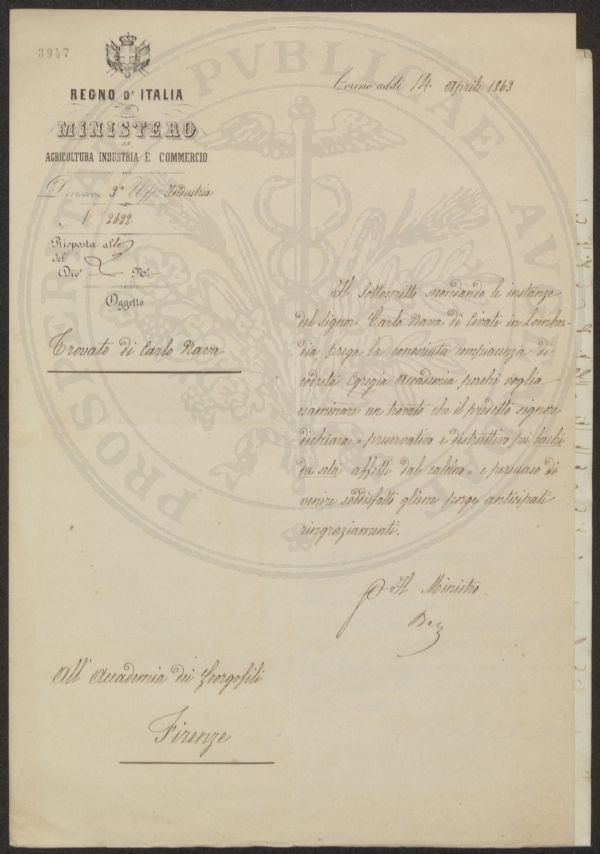 3947
REGNO D'ITALIA
MINISTERO
DI
AGRICOLTURA INDUSTRIA E COMMERCIO
Divisione 3ª Uff° Industria
N° 2622
Risposta alla
del
Div° N°
Oggetto
Trovato di Carlo Rava
Torino addì 14 Aprile 1863
Il sottoscritto secondando le instanze
del Signor Carlo Rava di Civate in Lombar-
dia prega la conosciuta compiacenza di
codesta Egregia Accademia perché voglia
esaminare un trovato che il predetto signore
dichiara "preservativo e distruttivo pei bachi
da seta affetti dal calcino" e persuaso di
venire soddisfatto gliene porge anticipati
ringraziamenti.
Il Ministro
All' Accademia dei Georgofili
Firenze
PROSPERITATI PVBLICAE AVGENDAE